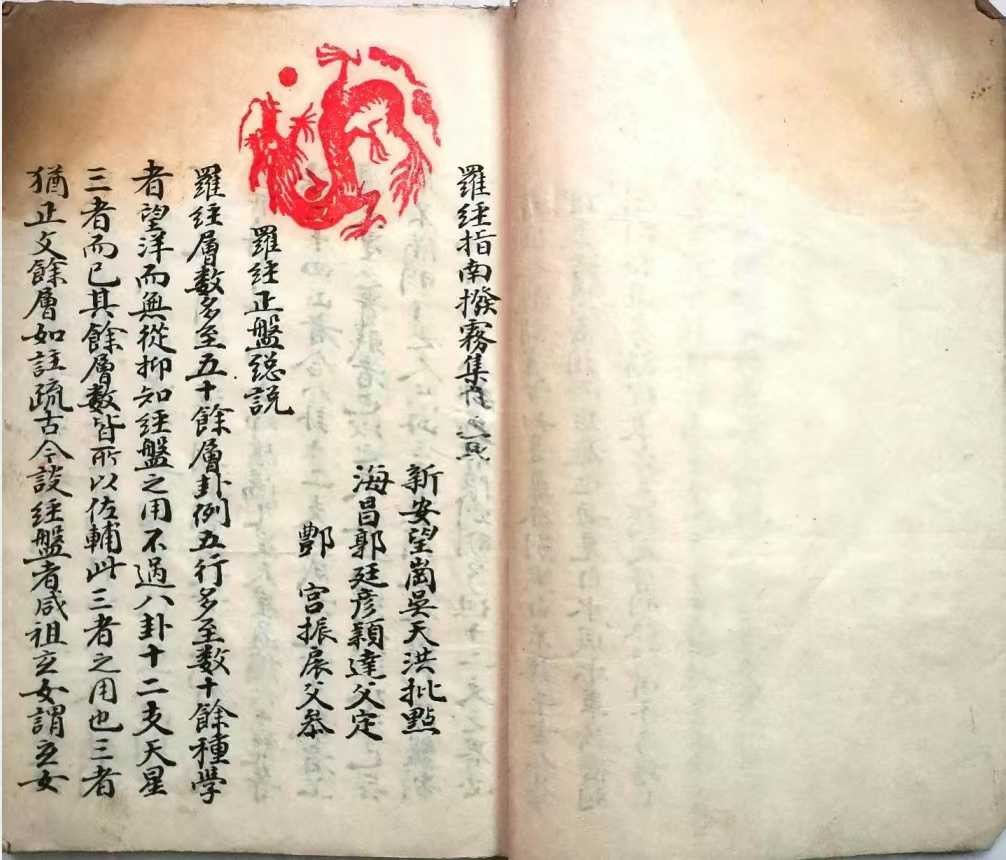 羅經指南撥霧集
新安望崗吳天洪批點
海昌郭廷彥穎達父定
酆宫振展父叅
羅經正盤緫説
羅經層數多至五十餘層卦例五行多至数十餘種學
者望洋而無從抑知經盤之用不過八卦十二支天星
三者而已其餘層数皆所以佐輔此三者之用也三者
猶正文餘層如註疏古今談經盤者咸祖玄女謂玄女